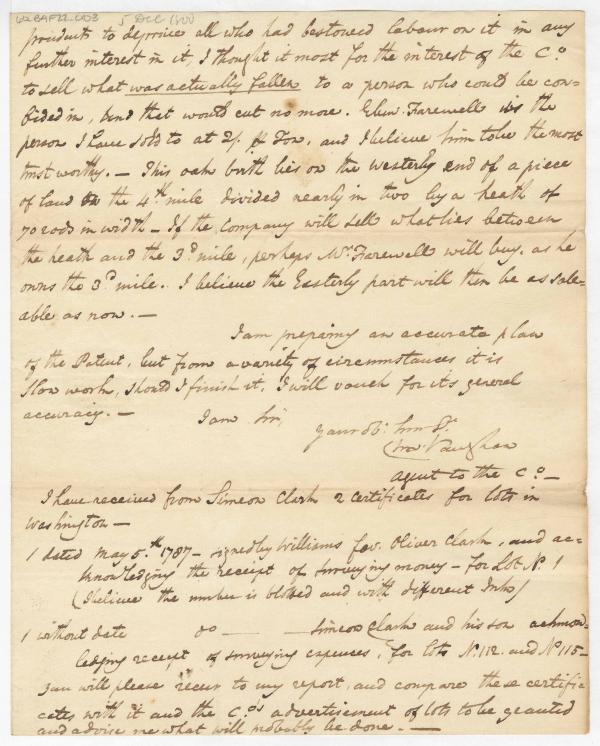 5 Dec 1800
prudent to deprive all who had bestowed labour on it in any
further interest in it, I thought it most for the interest of the Co.
to sell what was actually fallen to a person who could be con=
fided in, and that would cut no more. Eben. Farewell is the
person I have sold to at 2/. Ton, and I believe him to be the most
trust worthy. — This oak birth lies on the Westerly end of a piece
of land on the 4th mile divided nearly in two by a heath of
70 rods in width — If the Company will sell what lies between
the heath and the 3d mile, perhaps Mr. Farewell will buy. as he
owns the 3d mile. I believe the Easterly part will then be as sale=
able as now. —
I am preparing an accurate plan
of the Patent, but from a variety of circumstances it is
slow work, should I finish it, I will vouch for its general
accuracy. —
I am Sir,
Your ob: hum St.
Vaughan
Agent to the Co. —
I have received from Simeon Clark 2 certificates for lots in
Washington —
1 dated May 5th 1787 — signed by Williams for Oliver Clark, and ac-
knowledging the receipt of surveying money — for Lot No. 1
(I believe the number is blotted and with different Inks)
1 without date do — Simeon Clark and his son acknow=
ledging receipt of surveying expences, for lots No. 112. and No 115 —
You will please recur to my report, and compare these certifi=
cates with it and the Co.s advertisement of lots to be granted
and advise me what will probably be done. —